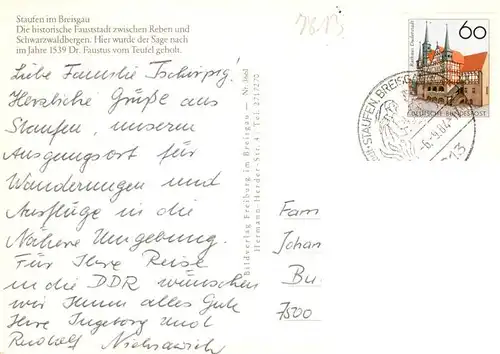 Staufen im Breisgau
Die historische Fauststadt zwischen Reben und
Schwarzwaldbergen. Hier wurde der Sage nach
im Jahre 1539 Dr. Faustus vom Teufel geholt.
Liebe Familie
Herzliche Grüße aus
Staufen, unserem
Ausgangsort für
Wanderungen und
Ausflüge in die
Nähere Umgebung.
Für Ihre Reise
in die DDR wünschen
wir Ihnen alles Gute
Ihre Ingeborg und
Rudolf
Bildverlag Freiburg im Breisgau — Nr.
Hermann-Herder-Str. 4 · Tel. 2717270
60
DEUTSCHE BUNDESPOST
STAUFEN BREISGAU
7813
Fam
Johan
Bu
7500